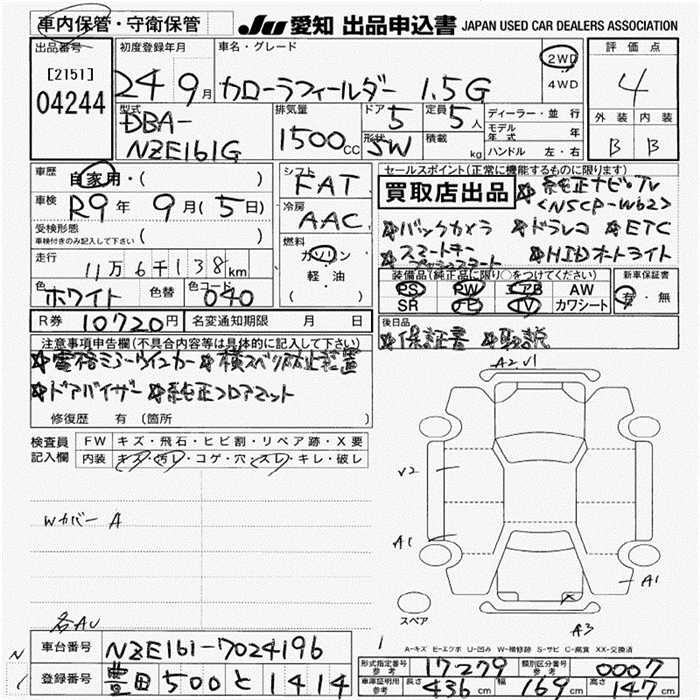 車内保管・守衛保管
JU 愛知 出品申込書 JAPAN USED CAR DEALERS ASSOCIATION
出品番号 初度登録年月 車名・グレード 2WD 4WD 評価点
[2151] 04244 24年 9月 カローラフィールダー 1.5G 4
型式 排気量 ドア 5 定員 5人 ディーラー・並行 外装 内装
DBA-NZE161G 1500CC 形状 SW 積載 kg モデル年式 年 B B
ハンドル 左・右
車歴 自家用・( ) シフト FAT セールスポイント(正常に機能するものに限ります)
車検 R9年 9月(5日) 冷房 AAC 買取店出品 ☆純正ナビ・TV
<NSCP-W62>
受検形態 車検付きのみ記入して下さい ( ) 燃料 ガソリン ☆バックカメラ ☆ドラレコ ☆ETC
走行 11万6千138km 軽・油 ☆スマートキー プッシュスタート ☆HIDオートライト
( )
装備品(純正品に限り○をつけてください) 新車保証書
色 ホワイト 色替 色コード 040 PS PW エアB AW 有・無
SR ナビ TV カワシート
R券 10720円 名変通知期限 月 日 後日品
☆保証書 ☆取説
注意事項申告欄(不具合内容等は具体的に記入して下さい)
☆電格ミラーウインカー ☆横スベリ防止装置
☆ドアバイザー ☆純正フロアマット
修復歴 有 (箇所 )
A2 U1
検査員記入欄 FW キズ・飛石・ヒビ割・リペア跡・X要
内装 キズ・汚レ・コゲ・穴・スレ・キレ・破レ
U2
Wカバー A
A1
A1
スペア
各AU
A3
1
A-キズ E-エクボ U-凹み W-補修跡 S-サビ C-腐食 XX-交換済
車台番号 NZE161-7024196 形式指定番号 参考 17279 類別区分番号 参考 0007
登録番号 豊田 500 と 1414 車庫証明用 参考 長さ 436cm 幅 169cm 高さ 147cm